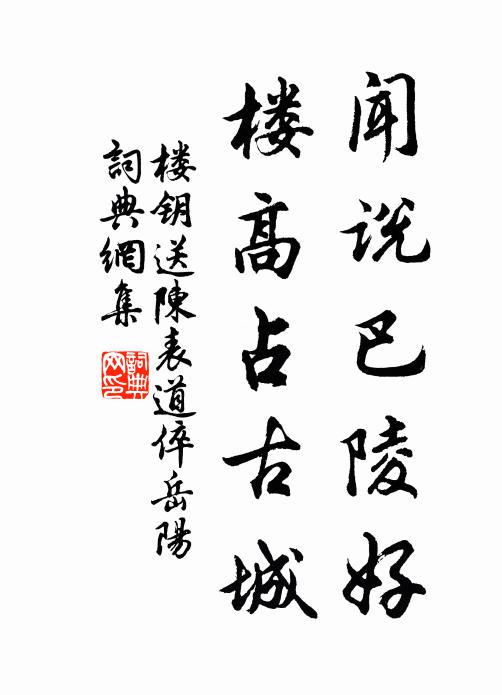 闻说巴陵好
楼高占古城
楼钥送陳表道倅岳陽
詞典網集
詞典网印